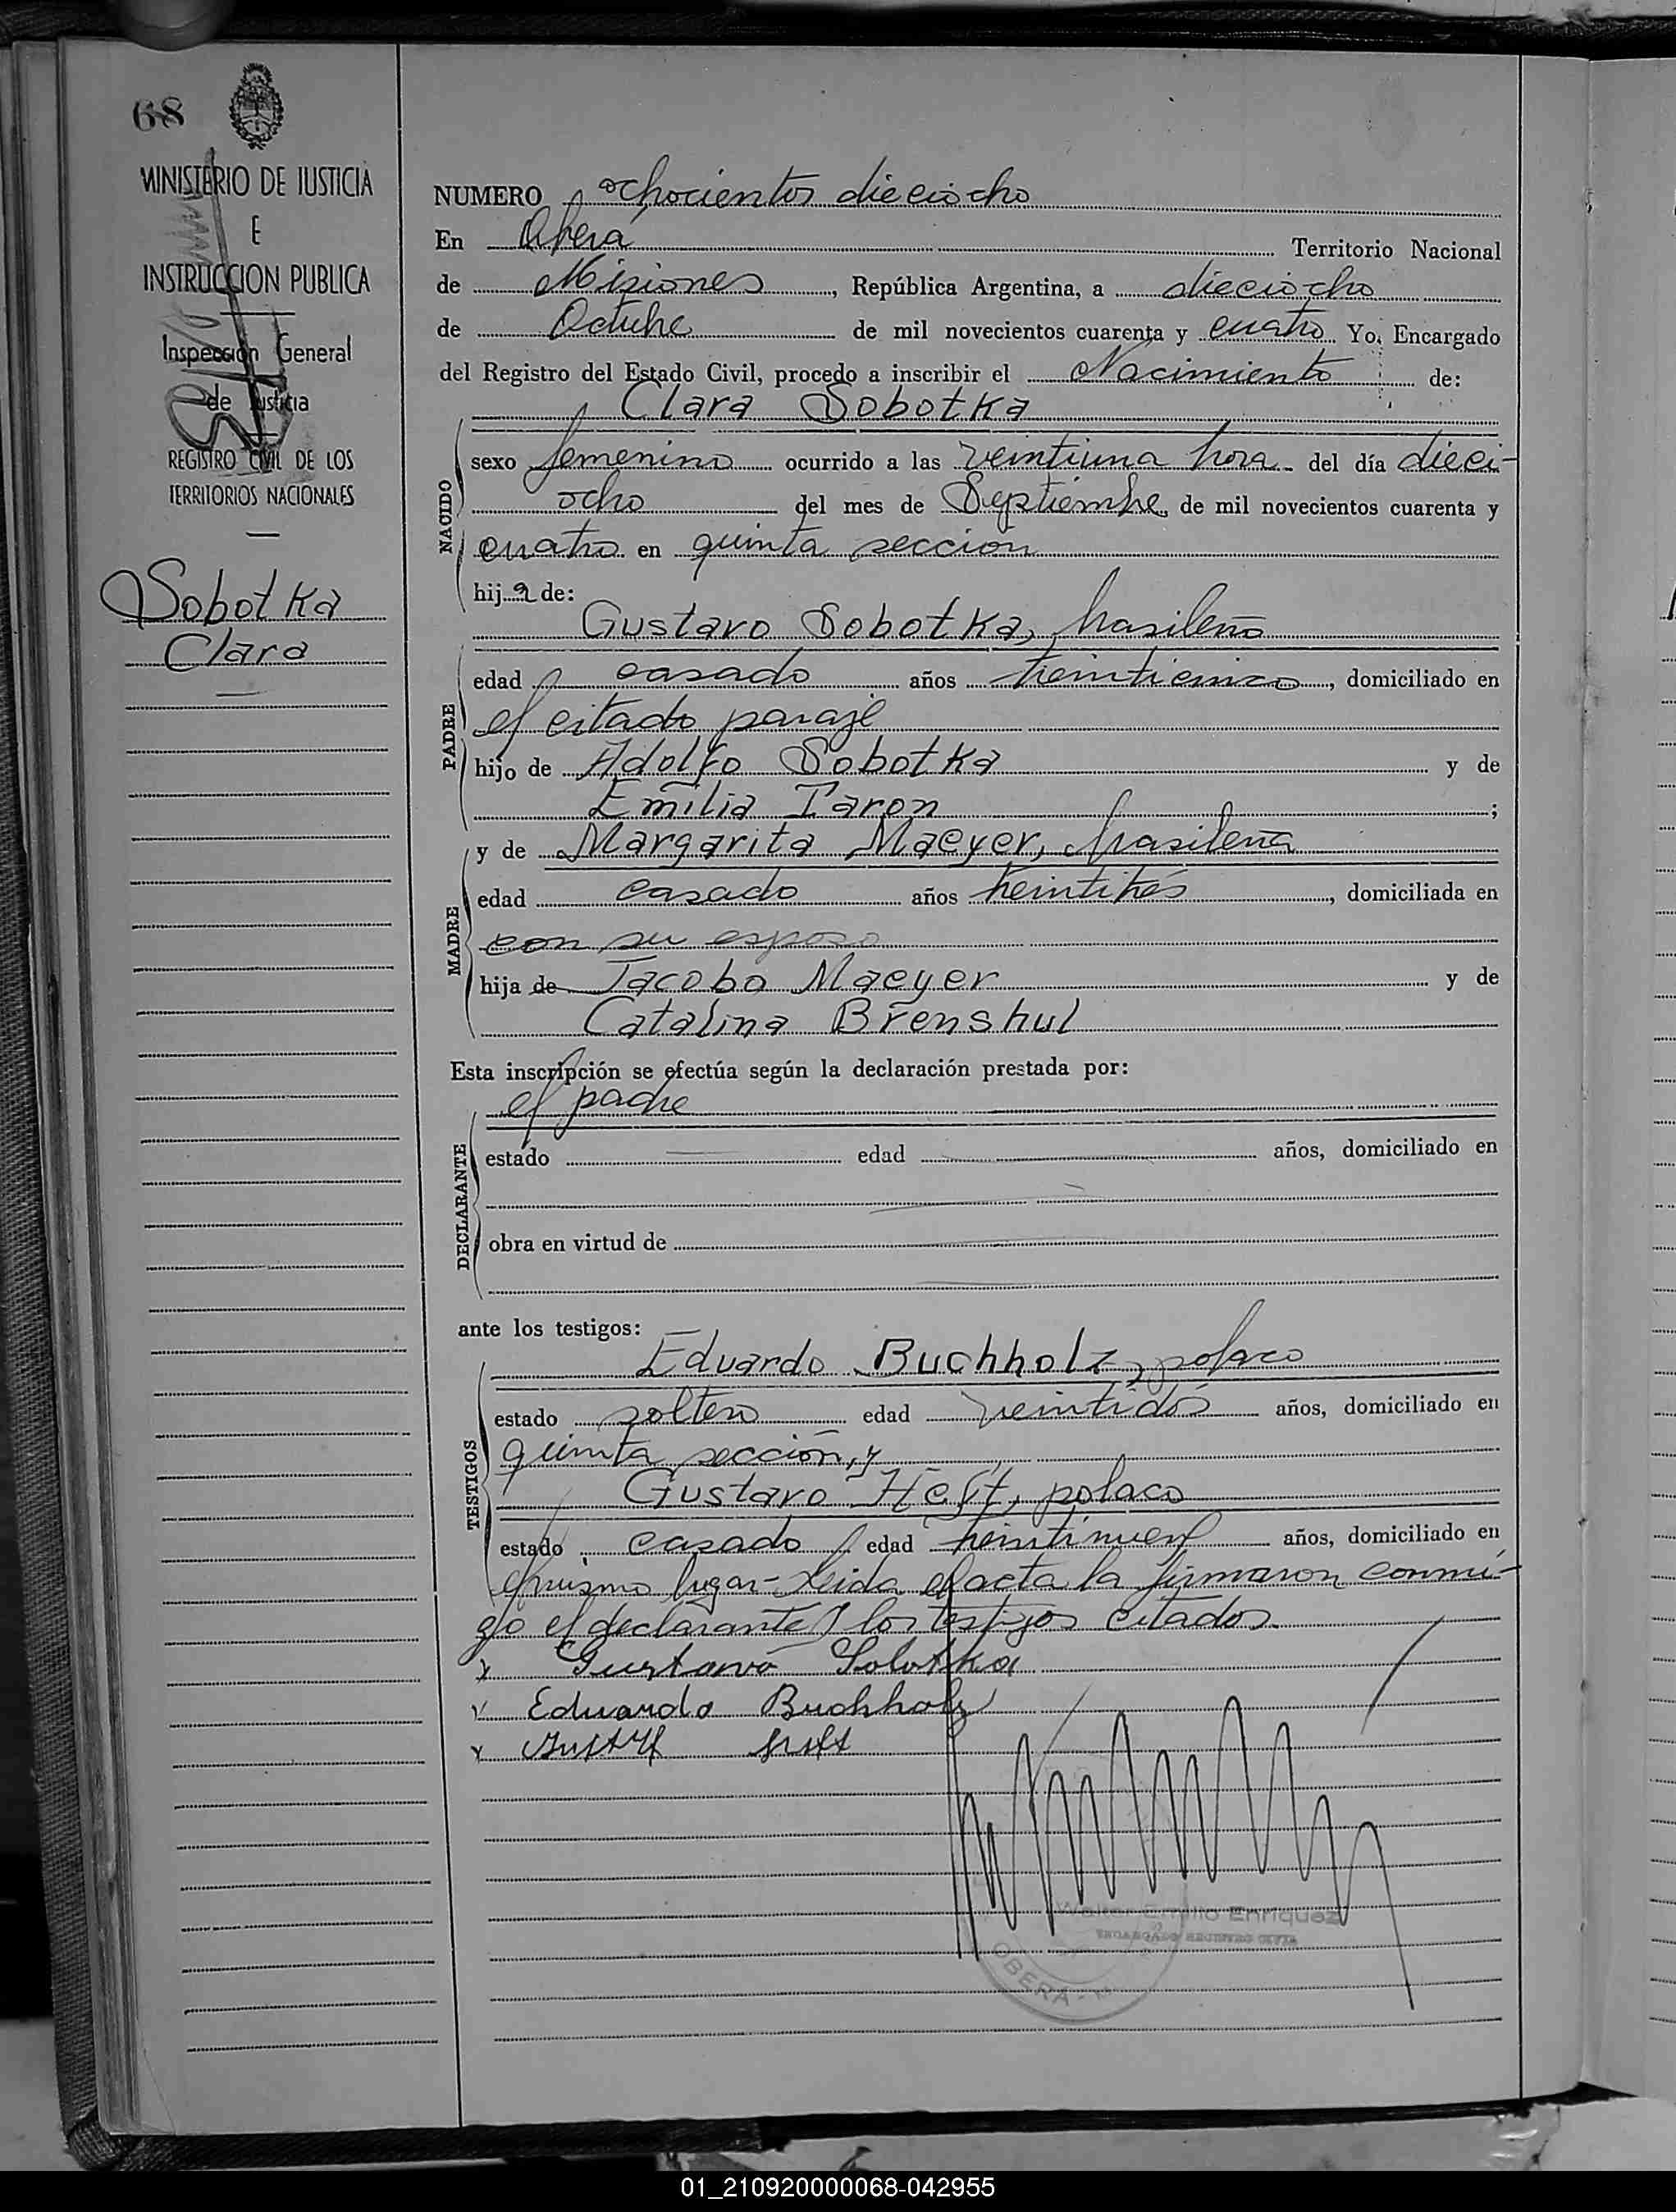 68
MINISTERIO DE JUSTICIA
E
INSTRUCCION PUBLICA
Inspección General
de Justicia
REGISTRO CIVIL DE LOS
TERRITORIOS NACIONALES
Sobotka
Clara
NUMERO ochocientos dieciocho
En Obera Territorio Nacional
de Misiones, República Argentina, a dieciocho
de Octubre de mil novecientos cuarenta y cuatro Yo, Encargado
del Registro del Estado Civil, procedo a inscribir el Nacimiento de:
Clara Sobotka
NACIDO
sexo femenino ocurrido a las veintiuna hora del día dieci-
ocho del mes de Septiembre de mil novecientos cuarenta y
cuatro en quinta sección
hija de:
Gustavo Sobotka, brasileño
PADRE
edad casado años treinticinco, domiciliado en
el citado paraje
hijo de Adolfo Sobotka y de
Emilia Taron;
y de Margarita Maeyer, brasileña
MADRE
edad casado años treintitrés, domiciliada en
con su esposo
hija de Jacobo Maeyer y de
Catalina Brenshul
Esta inscripción se efectúa según la declaración prestada por:
el padre
DECLARANTE
estado edad años, domiciliado en
obra en virtud de
ante los testigos:
Eduardo Buchholz, polaco
TESTIGOS
estado soltero edad veintidós años, domiciliado en
quinta sección, y
Gustavo Heft, polaco
estado casado edad treintinueve años, domiciliado en
el mismo lugar- Leida el acta la firmaron conmi-
go el declarante y los testigos citados.
x Gustavo Sobotka
x Eduardo Buchholz
x
Walter Emilio Enriquez
ENCARGADO REGISTRO CIVIL
OBERA
01_210920000068-042955